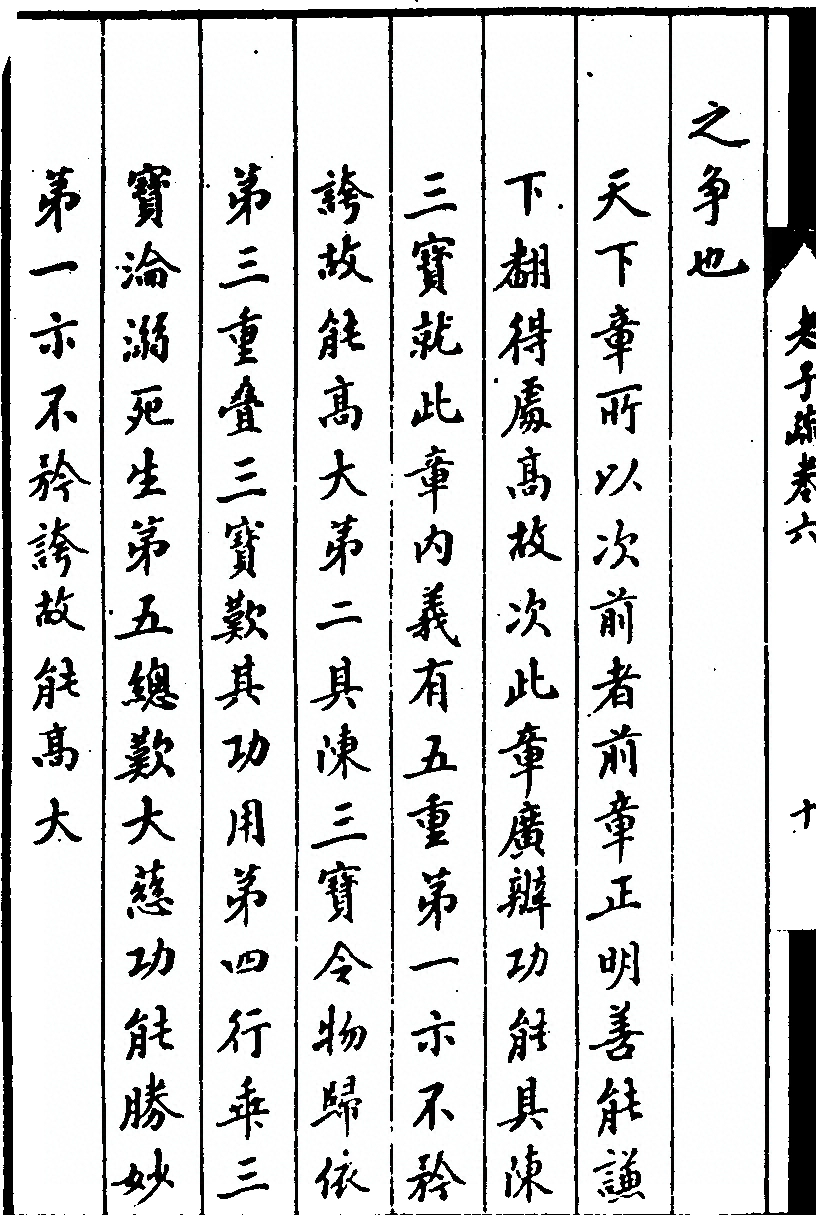 老子疏卷六
十
之争也
天下章所以次前者前章正明善能謙
下翻得處高故次此章廣辦功能具陳
三寶就此章内義有五重第一示不矜
誇故能高大第二具陳三寶令物歸依
第三重疊三寶歎其功用第四行乖三
寶淪溺死生第五總歎大慈功能勝妙
第一示不矜誇故能高大